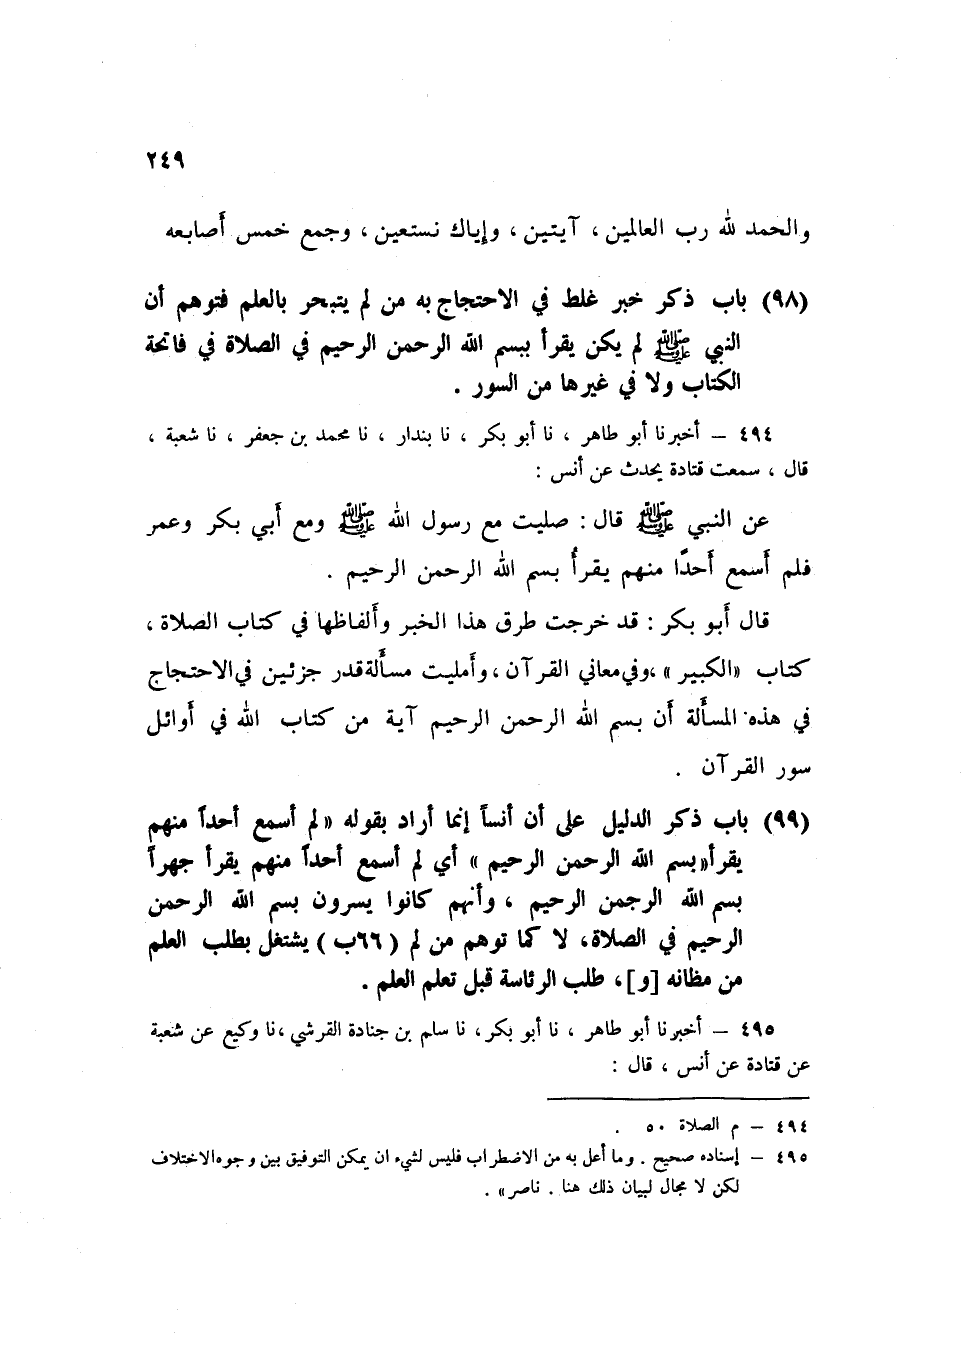 ٢٤٩
والحمد لله رب العالمين ، آيتين ، وإياك نستعين ، وجمع خمس أصابعه
(٩٨) باب ذكر خبر غلط في الاحتجاج به من لم يتبحر بالعلم فتوهم أن
النبي ﷺ لم يكن يقرأ ببسم الله الرحمن الرحيم في الصلاة في فاتحة
الكتاب ولا في غيرها من السور .
٤٩٤ – أخبرنا أبو طاهر ، نا أبو بكر ، نا بندار ، نا محمد بن جعفر ، نا شعبة ،
قال ، سمعت قتادة يحدث عن أنس :
عن النبي ﷺ قال : صليت مع رسول الله ﷺ ومع أبي بكر وعمر
فلم أسمع أحدًا منهم يقرأُ بسم الله الرحمن الرحيم .
قال أبو بكر : قد خرجت طرق هذا الخبر وألفاظها في كتاب الصلاة ،
كتاب «الكبير» ، وفي معاني القرآن ، وأمليت مسألة قدر جزئين في الاحتجاج
في هذه المسألة أن بسم الله الرحمن الرحيم آية من كتاب الله في أوائل
سور القرآن .
(٩٩) باب ذكر الدليل على أن أنساً إنما أراد بقوله «لم أسمع أحداً منهم
يقرأ«بسم الله الرحمن الرحيم» أي لم أسمع أحداً منهم يقرأ جهراً
بسم الله الرجمن الرحيم ، وأنهم كانوا يسرون بسم الله الرحمن
الرحيم في الصلاة، لا كما توهم من لم (٦٦ب) يشتغل بطلب العلم
من مظانه [و]، طلب الرئاسة قبل تعلم العلم .
٤٩٥ – أخبرنا أبو طاهر ، نا أبو بكر ، نا سلم بن جنادة القرشي ، نا وكيع عن شعبة
عن قتادة عن أنس ، قال :
٤٩٤ – م الصلاة ٥٠ .
٤٩٥ – إسناده صحيح . وما أعل به من الاضطراب فليس لشيء ان يمكن التوفيق بين وجوه الاختلاف
لكن لا مجال لبيان ذلك هنا . ناصر» .